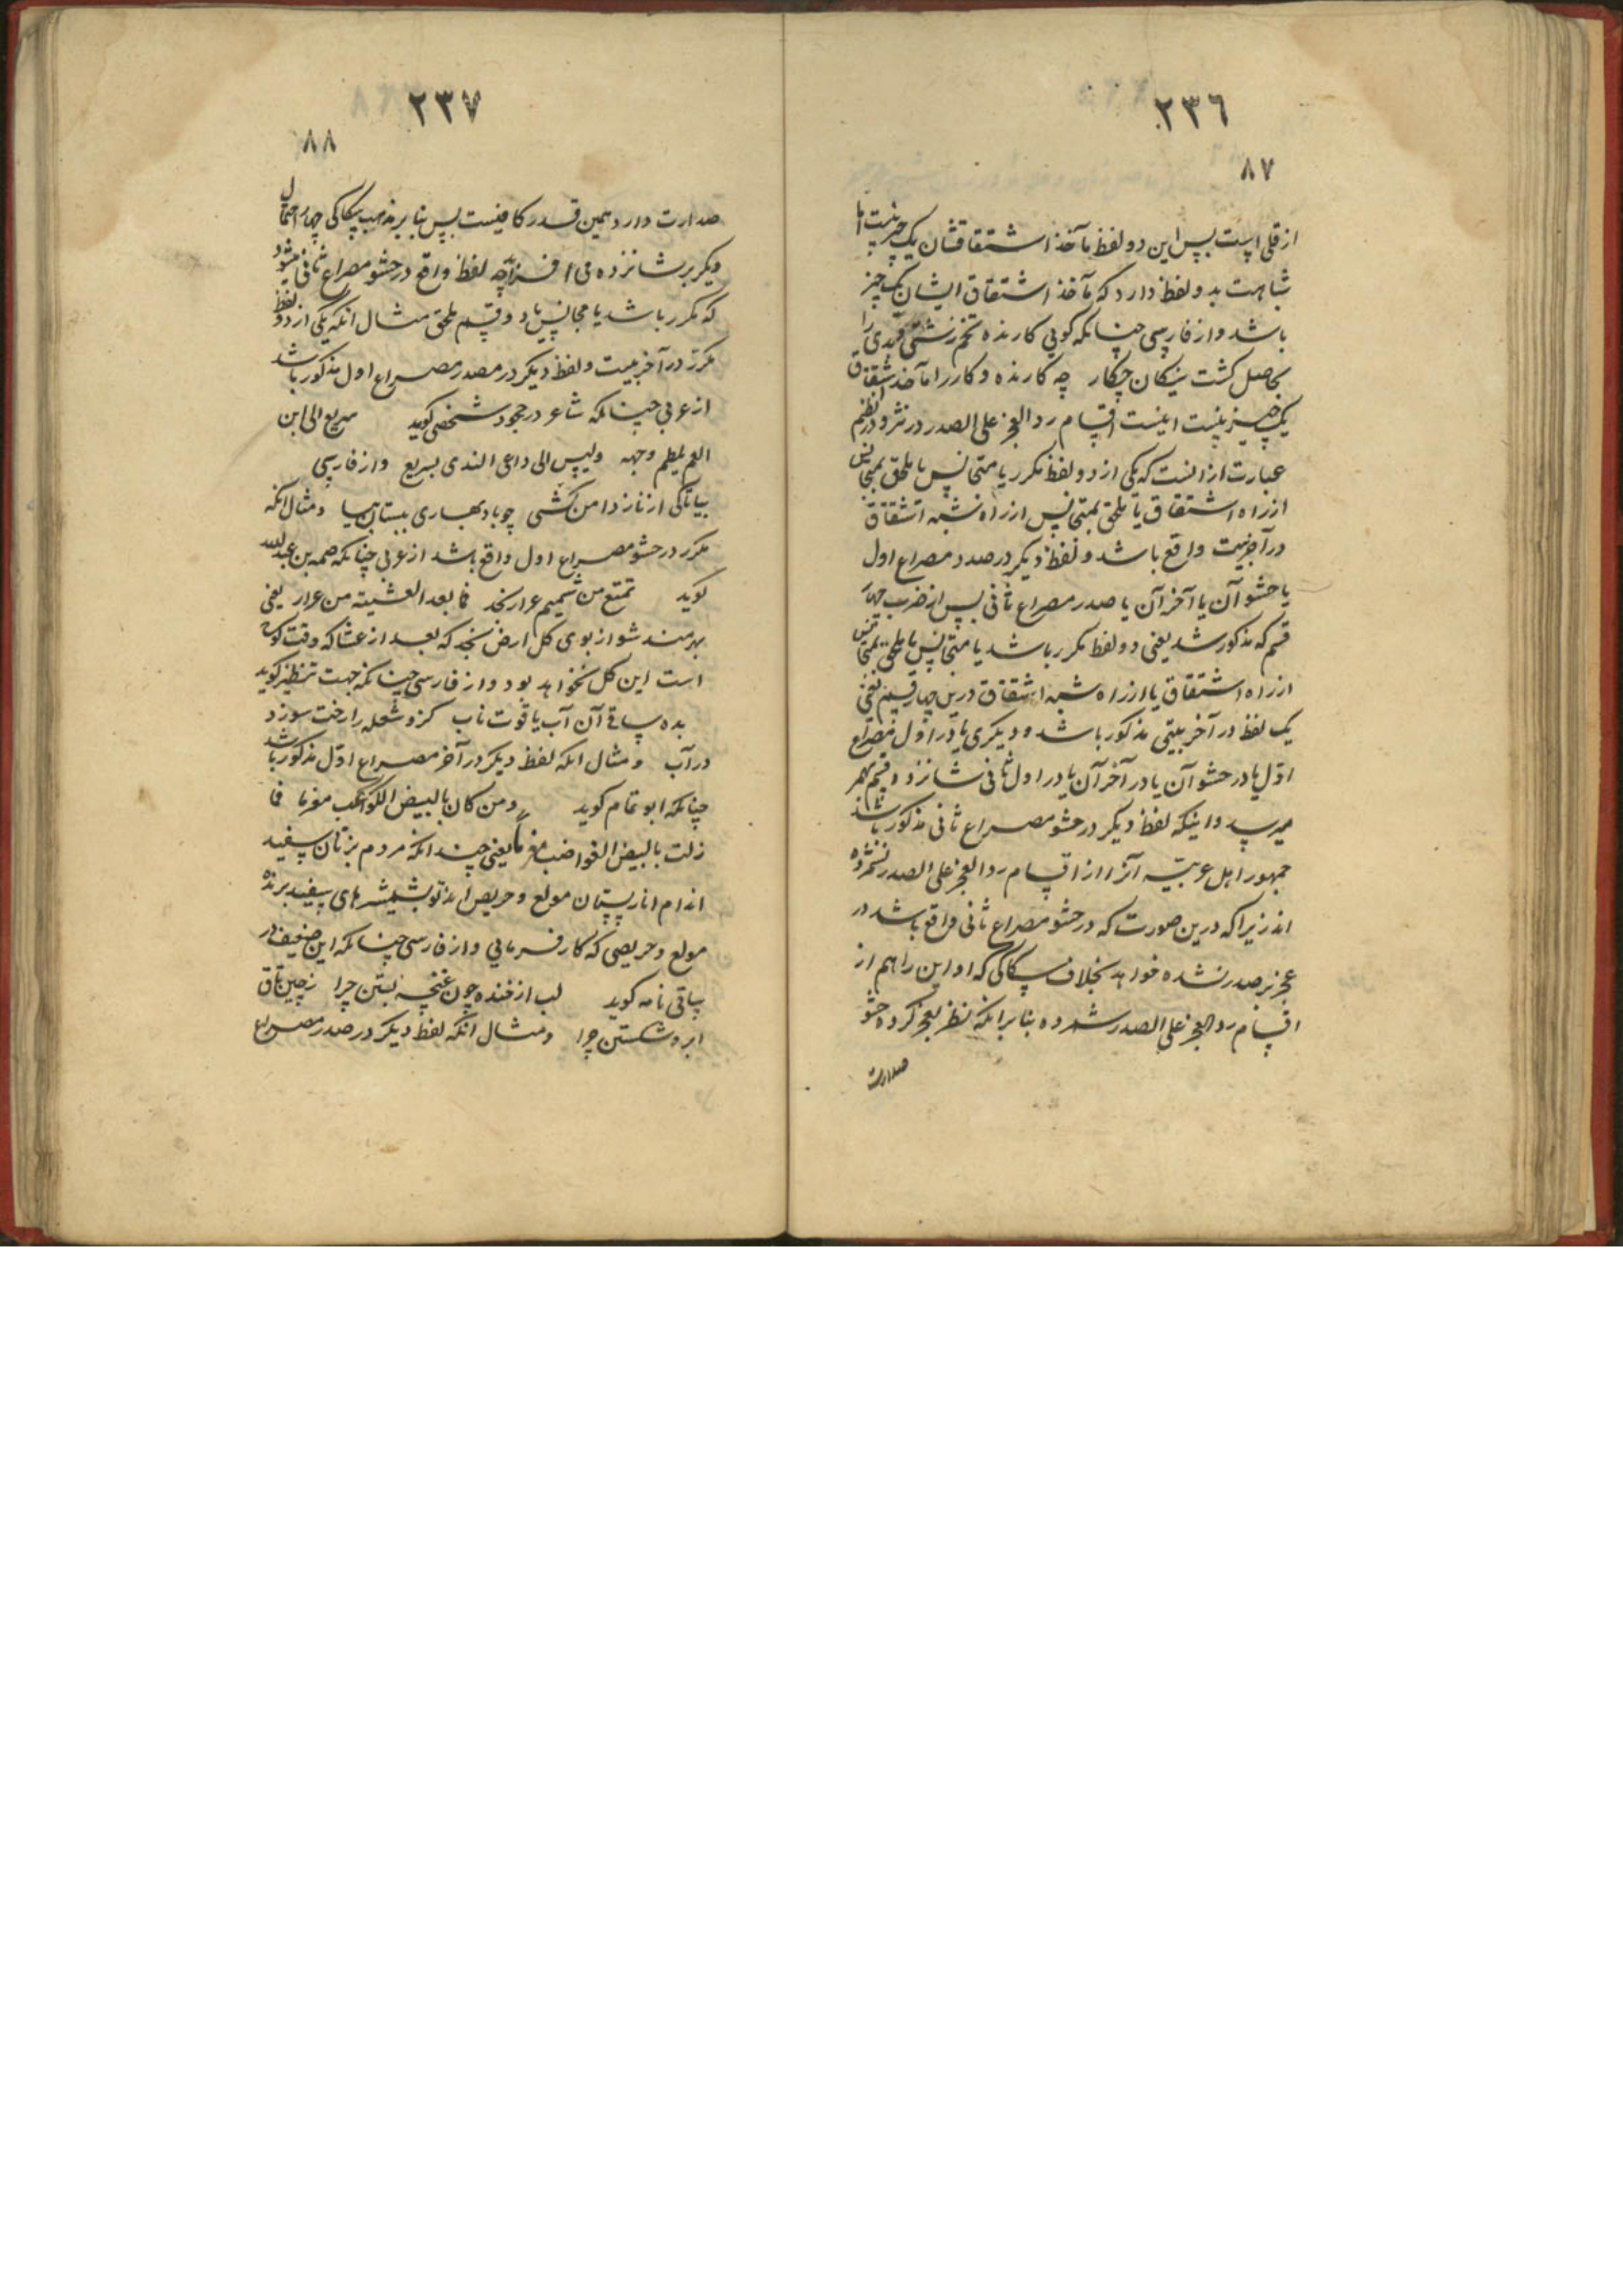 ٢٣٦
٨٧
از قلی است پس این دو لفظ مآخذ اشتقاقشان یک چیز نیست اما
شباهت بدو لفظ دارد که مآخذ اشتقاق ایشان یک چیز
باشد و از فارسی چنانکه کویی کارنده تخم زشتی و بدی را
بحاصل کشت نیکان چکار چه کارنده و کار را مآخذ اشتقاق
یک چیز نیست اینست اقسام رد العجز علی الصدر در نثر و در نظم
عبارت از انست که یکی از دو لفظ مکرر یا متجانس یا ملحق بمتجانس
از راه اشتقاق یا ملحق بمتجانس از راه شبه اشتقاق
در آخر بیت واقع باشد و لفظ دیکر در صدر مصراع اول
یا حشو آن یا آخر آن یا صدر مصراع ثانی پس از ضرب چهار
قسم که مذکور شد یعنی دو لفظ مکرر باشد یا متجانس یا ملحق بمتجانس
از راه اشتقاق یا از راه شبه اشتقاق درین چهار قسم یعنی
یک لفظ در آخر بیتی مذکور باشد و دیکری یا در اول مصراع
اول یا در حشو آن یا در آخر آن یا در اول ثانی شانزده قسم بهم
میرسد و اینکه لفظ دیکر در حشو مصراع ثانی مذکور باشد
جمهور اهل عربیه آنرا از اقسام رد العجز علی الصدر نشمرده
اند زیرا که درین صورت که در حشو مصراع ثانی واقع باشد در
عجز بر صدر نشده خواهد بخلاف سکاکی که او این را هم از
اقسام رد العجز علی الصدر شمرده بنا بر انکه نظر بعجز کرده حشو
صدارت
٢٣٧
٨٨
صدارت دارد همین قدر کافیست پس بنا بر مذهب سکاکی چهار احتمال
دیکر بر شانزده می افزاید چه لفظ واقع در حشو مصراع ثانی میشود
که مکرر باشد یا مجانس یا دو قسم ملحق مثال انکه یکی از دو لفظ
مکرر در آخر بیت و لفظ دیکر در صدر مصراع اول مذکور باشد
از عربی چنانکه شاعر در هجو شخصی کوید سریع الی ابن
العم یلطم وجهه ولیس الی داعی الندی بسریع و از فارسی
بیا تاکی از ناز دامن کشی چو باد بهاری ببستان بیا و مثال انکه
مکرر در حشو مصراع اول واقع باشد از عربی چنانکه صمه بن عبدالله
کوید تمتع من شمیم عرار نجد فما بعد العشیة من عرار یعنی
بهرمند شو از بوی کل ارض نجد که بعد از عشا که وقت کوچ
است این کل نخواهد بود و از فارسی چنانکه جهت تنظیر کوید
بده ساقی آن آب یاقوت ناب کزو شعله را رخت سوزد
در آب و مثال انکه لفظ دیکر در آخر مصراع اول مذکور باشد
چنانکه ابو تمام کوید و من کان بالبیض الکواعب مغرما فما
زلت بالبیض القواضب مغرما یعنی چندانکه مردم بزنان سفید
اندام انار پستان مولع و حریص اند تو بشمشیرهای سفید برنده
مولع و حریصی که کار فرمایی و از فارسی چنانکه این ضعیف در
ساقی نامه کوید لب از خنده چون غنچه بستن چرا ز چین طاق
ابرو شکستن چرا و مثال آنکه لفظ دیکر در صدر مصراع